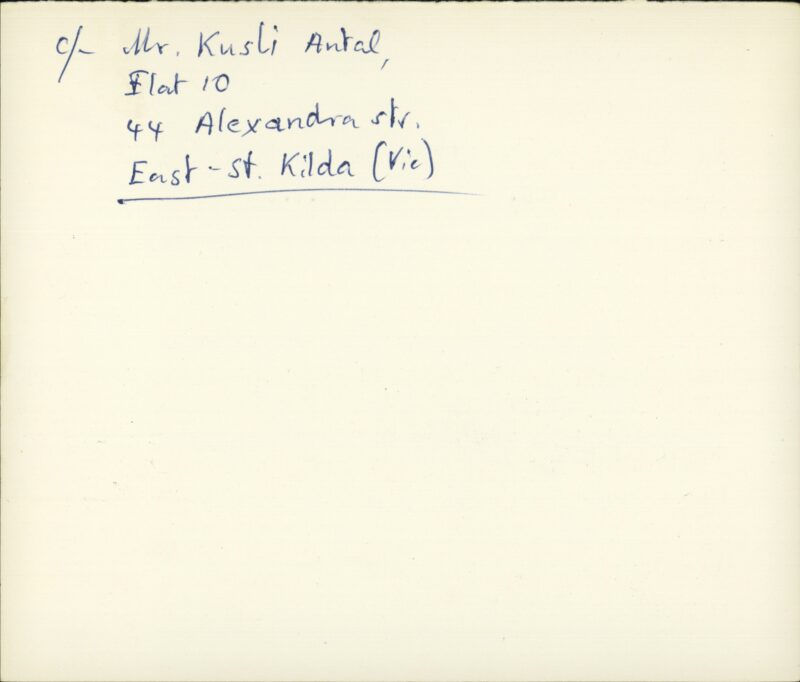 c/- Mr. Kusli Antal,
Flat 10
44 Alexandra str.
East - St. Kilda (Vic)